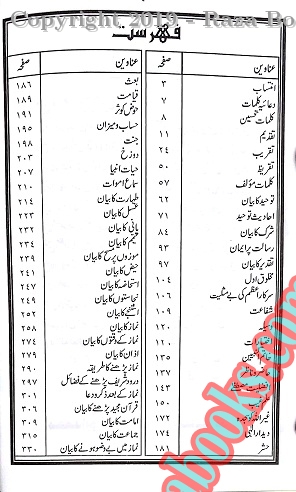 Copyright 2019 - Raza Bo
فہرست
عناوین صفحہ
انتساب ۳
دعائیہ کلمات ۷
کلمات تحسین ۸
تقدیم ۱۱
تقریب ۲۴
تقریظ ۵۰
کلمات مؤلف ۵۷
توحید کا بیان ۶۲
احادیث توحید ۷۱
شرک کا بیان ۸۴
رسالت پر ایمان ۹۳
تقدیر کا بیان ۹۷
مخلوق اول ۱۰۴
سرکار اعظم کی بے مثلیت ۱۰۶
شفاعت ۱۰۹
وسیلہ ۱۲۰
اختیارات ۱۲۰
خاتم النبیین ۱۳۵
حاضر و ناظر ۱۳۷
۱۴۳
علم غیب ۱۵۰
غیر اللہ کو سجدہ ۱۷۲
دیدار الہی ۱۷۴
حشر ۱۸۱
عناوین صفحہ
بعث ۱۸۶
قیامت ۱۸۹
حوض کوثر ۱۹۱
حساب و میزان ۱۹۵
جنت ۱۹۸
دوزخ ۲۰۳
حیات انبیا ۲۰۷
سماع اموات ۲۱۰
طہارت کا بیان ۲۱۴
غسل کا بیان ۲۲۳
پانی کا بیان ۲۳۲
تیمم کا بیان ۲۳۴
موزوں پر مسح کا بیان ۲۳۹
حیض کا بیان ۲۴۱
استحاضہ کا بیان ۲۴۷
نجاستوں کا بیان ۲۴۹
استنجے کا بیان ۲۵۲
نماز کا بیان ۲۵۸
نماز کے وقتوں کا بیان ۲۷۴
اذان کا بیان ۲۷۹
نماز پڑھنے کا طریقہ ۲۹۰
درود شریف پڑھنے کے فضائل ۲۹۷
نماز کے بعد ذکر و دعا ۳۰۱
قرآن مجید پڑھنے کا بیان ۳۰۶
امامت کا بیان ۳۰۹
جماعت کا بیان ۳۱۵
نماز میں بے وضو ہونے کا بیان ۳۳۰